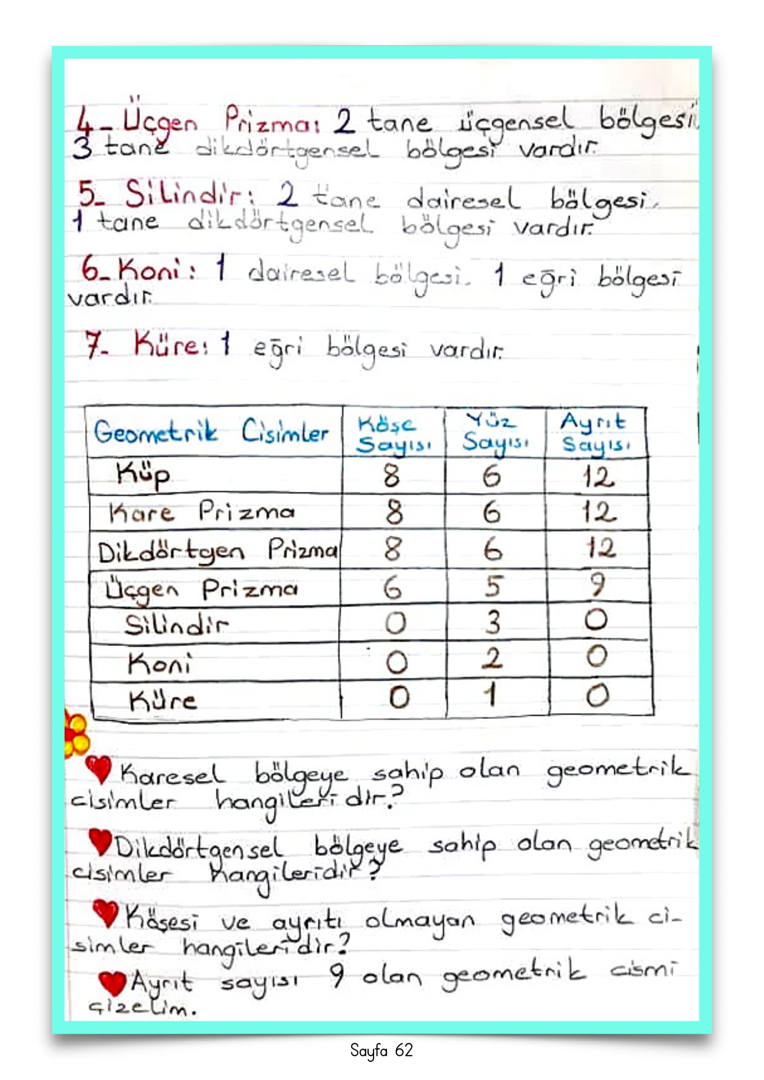 4- Üçgen Prizma: 2 tane üçgensel bölgesi
3 tane dikdörtgensel bölgesi vardır.
5- Silindir: 2 tane dairesel bölgesi,
1 tane dikdörtgensel bölgesi vardır.
6- Koni: 1 dairesel bölgesi, 1 eğri bölgesi
vardır.
7- Küre: 1 eğri bölgesi vardır.
Geometrik Cisimler Köşe Sayısı Yüz Sayısı Ayrıt Sayısı
Küp 8 6 12
Kare Prizma 8 6 12
Dikdörtgen Prizma 8 6 12
Üçgen Prizma 6 5 9
Silindir 0 3 0
Koni 0 2 0
Küre 0 1 0
Karesel bölgeye sahip olan geometrik
cisimler hangileridir?
Dikdörtgensel bölgeye sahip olan geometrik
cisimler hangileridir?
Köşesi ve ayrıtı olmayan geometrik ci-
simler hangileridir?
Ayrıt sayısı 9 olan geometrik cismi
çizelim.
Sayfa 62